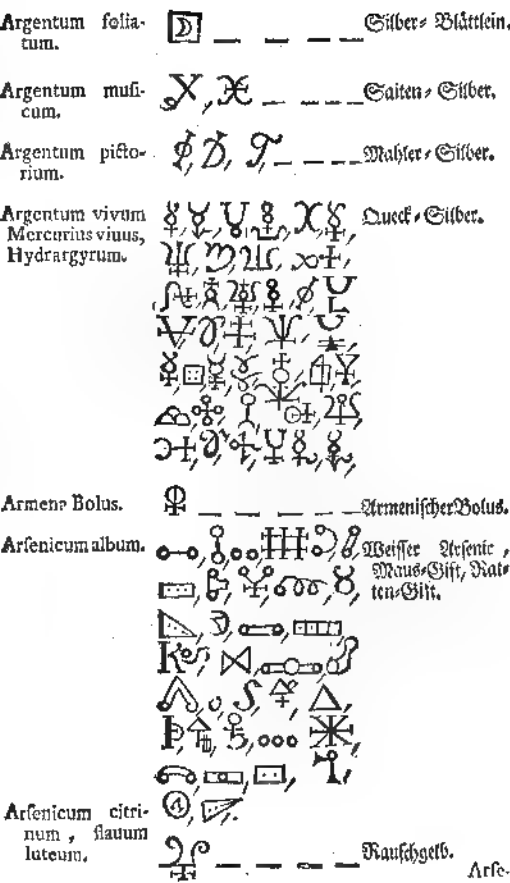 Argentum folia- Silber⸗Blättlein.
tum.
Argentum musi- Saiten⸗Silber.
cum.
Argentum picto- Mahler⸗Silber.
rium.
Argentum vivum Queck⸗Silber.
Mercurius viuus,
Hydrargyrum.
Armena Bolus. Armenischer Bolus.
Arsenicum album. Weisser Arsenic,
Maus⸗Gift, Rat-
ten⸗Gift.
Arsenicum citri-
num, flauum
luteum. Rauschgelb.
Arse-